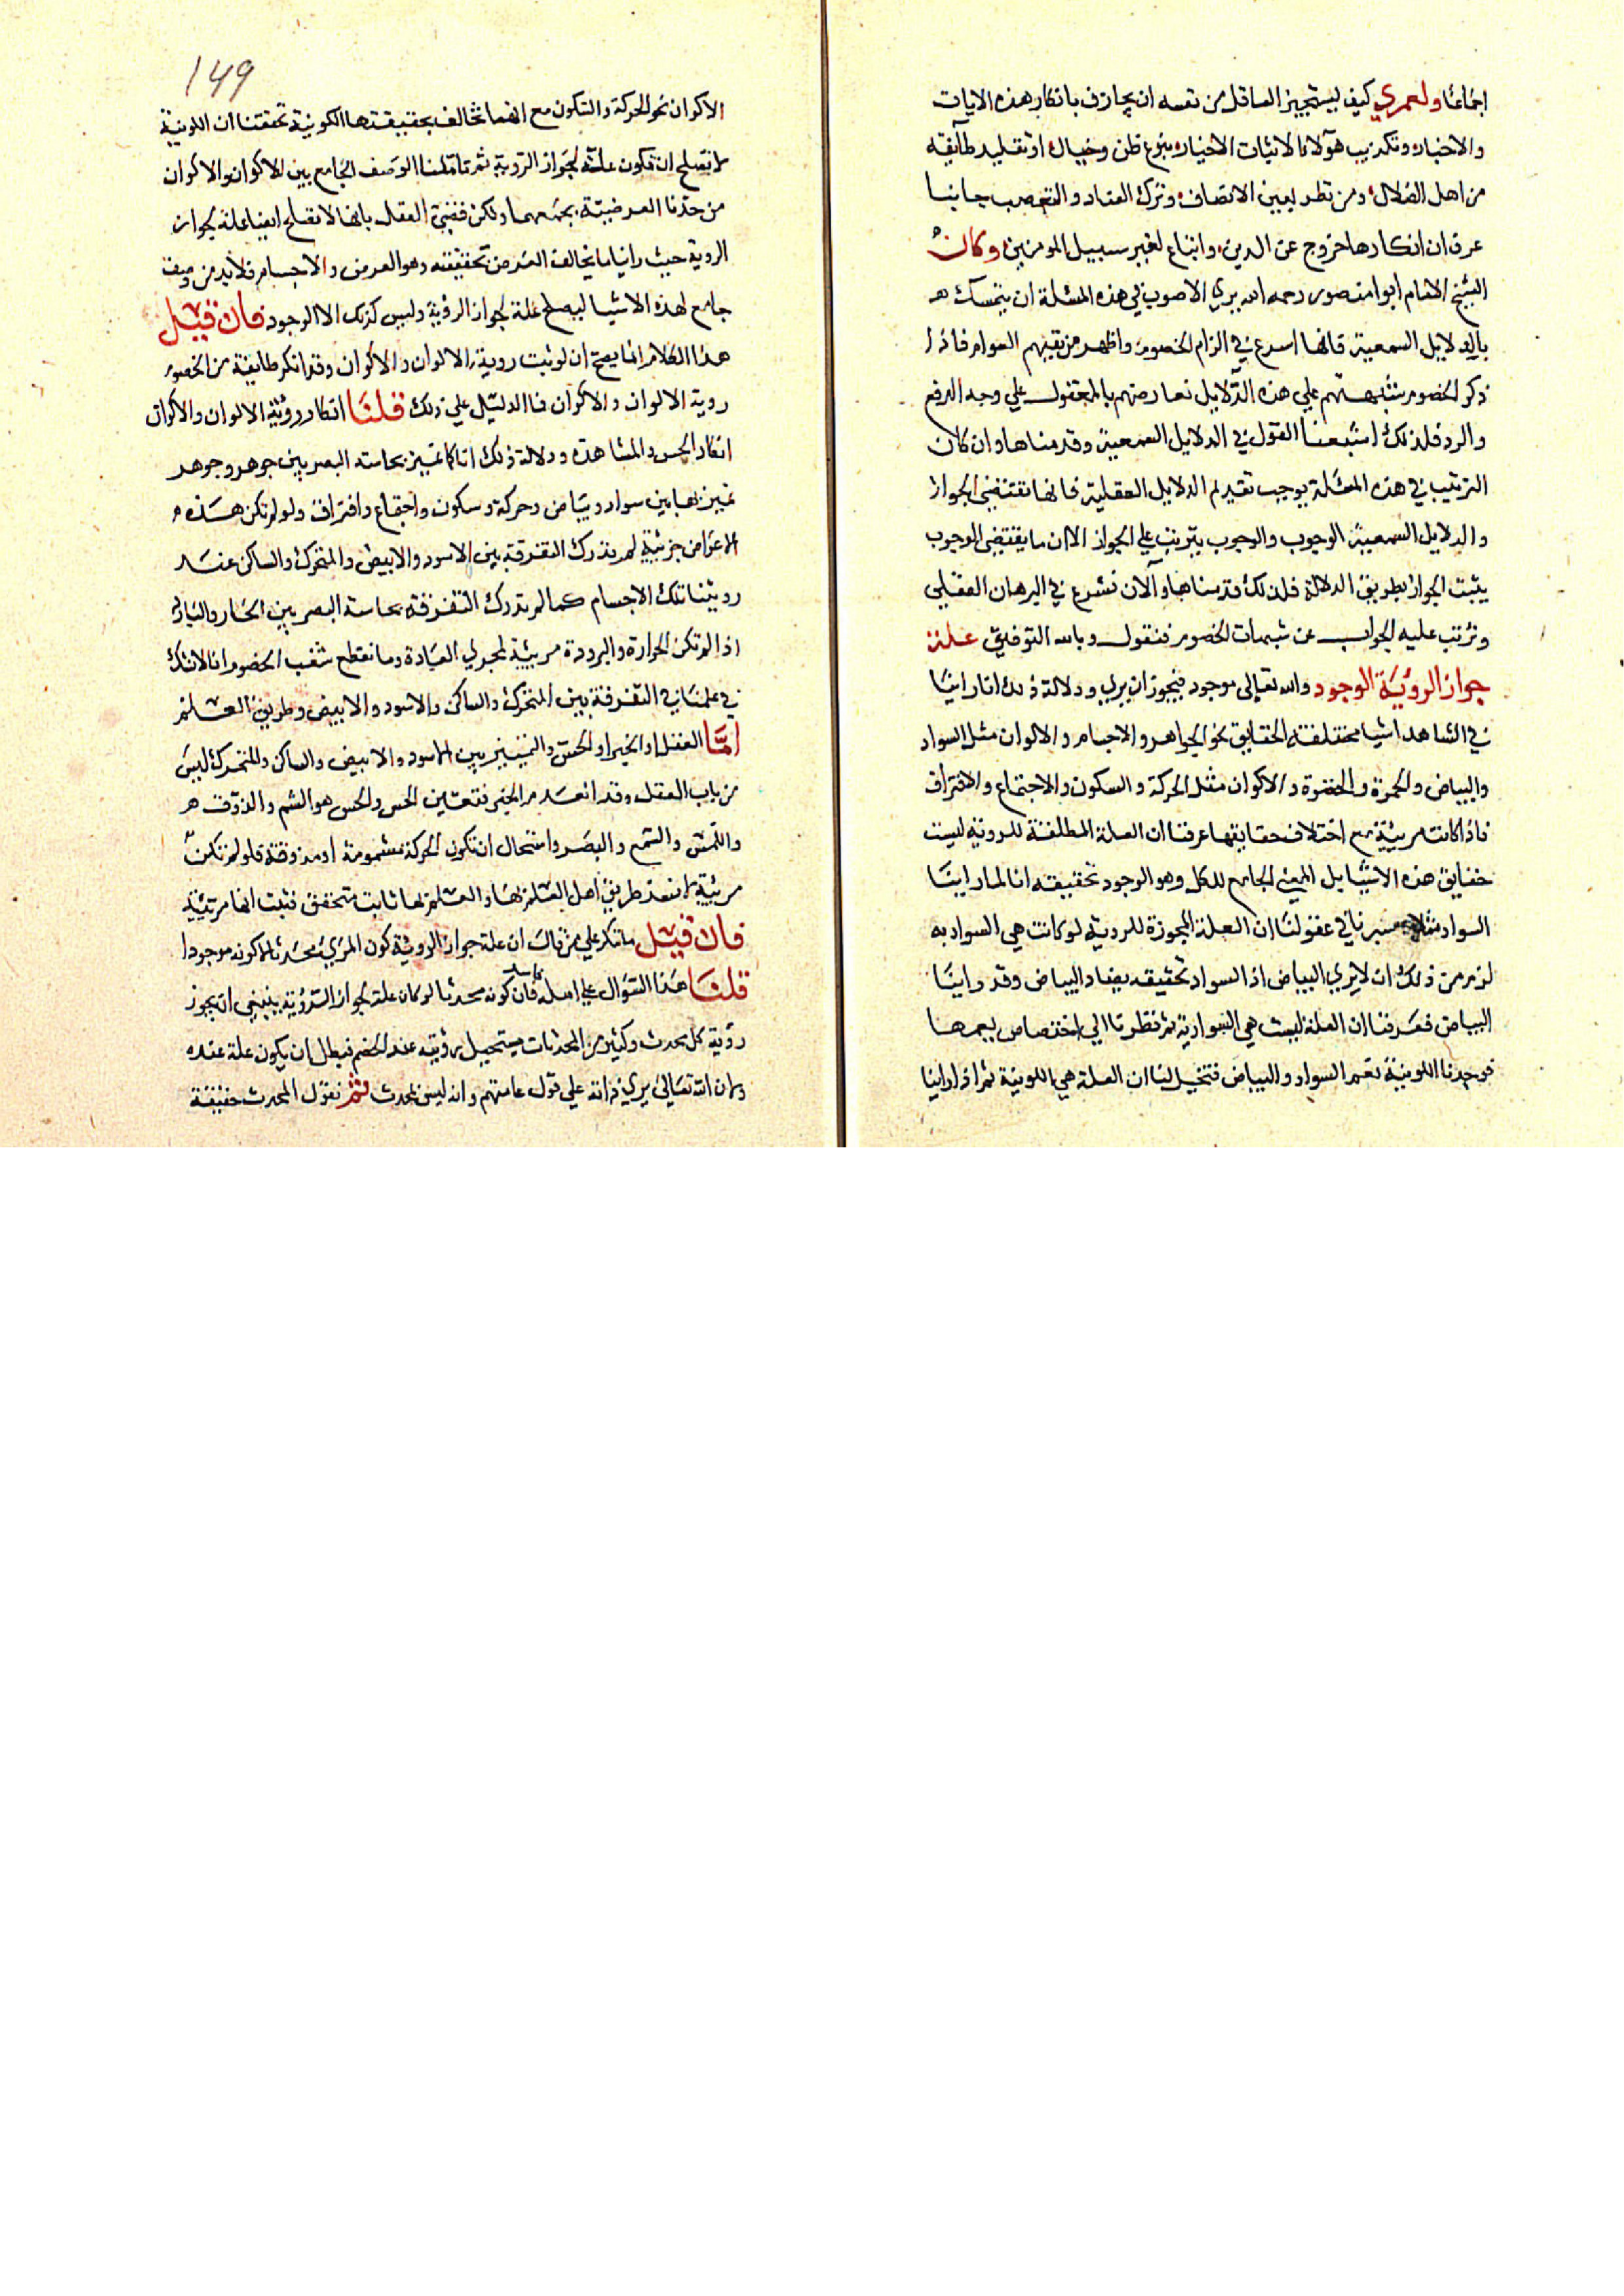 اجماعا ولعمري كيف يستجيز العاقل من نفسه ان يجازف بانكار هذه الايات
والاخبار وتكذيب هولا الاثبات الاخيار بنزع ظن وخيال او تقليد طائفه
من اهل الضلال ومن نظر بعين الانصاف وترك العناد والتعصب جانبا
عرف ان انكارها خروج عن الدين واتباع لغير سبيل المومنين وكان
الشيخ الامام ابوا منصور رحمه الله يري الاصوب في هذه المسئلة ان يتمسك
بالدلايل السمعية فانها اسرع في الزام الخصوم واظهر من تفهم العوام فاذا
ذكر الخصوم شبههم علي هذه الدلايل نعارضهم بالمعقول علي وجه الدفع
والرد فلذلك اشبعنا القول في الدلايل السمعية وقدمناها وان كان
الترتيب في هذه المسئلة يوجب تقديم الدلايل العقلية فانها تقتضي الجواز
والدلايل السمعية الوجوب والوجوب يترتب علي الجواز الا ان ما يقتضي الوجوب
يثبت الجواز بطريق الدلالة فلذلك قدمناها والان نشرع في البرهان العقلي
ونرتب عليه الجواب عن شبهات الخصوم فنقول وبالله التوفيق علة
جواز الروية الوجود والله تعالي موجود فيجوز ان يري ودلالة ذلك انا راينا
في الشاهد اشيا مختلفة الحقايق نحو الجواهر والاجسام والالوان مثل السواد
والبياض والحمرة والخضرة والاكوان مثل الحركة والسكون والاجتماع والافتراق
فاذا كانت مرئية مع اختلاف حقايقها عرفنا ان العلة المطلقة للروية ليست
حقايق هذه الاشيا بل المعني الجامع للكل وهو الوجود تحقيقه انا لما راينا
السواد مثلا سبرنا في عقولنا ان العلة المجوزة للروية لو كانت هي السوادية
لزم من ذلك ان لا يري البياض اذ السواد تحقيقه يضاد البياض وقد راينا
البياض فعرفنا ان العلة ليست هي السوادية ثم نظرنا الي اختصاص يعمهما
فوجدنا اللونية تعم السواد والبياض فتخيل لنا ان العلة هي اللونية ثم اذا راينا
١٤٩
الاكوان نحو الحركة والسكون مع انهما تخالف بحقيقتها الكونية تحققنا ان اللونية
لا تصلح ان تكون علة لجواز الروية ثم تاملنا الوصف الجامع بين الاكوان والاكوان
من حدنا العرضية بجمعهما ولكن قضي العقل بانها لا تصلح ايضا علة لجواز
الروية حيث راينا ما يخالف العرض تحقيقه وهو العرض والاجسام فلا بد من وصف
جامع لهذه الاشيا ليصلح علة لجواز الروية وليس كذلك الا الوجود فان قيل
هذا الكلام انما يصح ان لو ثبت روية الالوان والاكوان وقد انكر طايفة من الخصوم
روية الالوان والاكوان فما الدليل علي ذلك قلنا انكار روية الالوان والاكوان
انكار الحس والمشاهدة ودلالة ذلك انا كما نميز بحاسة البصر بين جوهر وجوهر
نميز بها بين سواد وبياض وحركة وسكون واجتماع وافتراق ولو لم تكن هذه
الاعراض مرئية لم ندرك التفرقة بين الاسود والابيض والمتحرك والساكن عند
رويتنا تلك الاجسام كما لم ندرك التفرقة بحاسة البصر بين الحار والبارد
اذ لم تكن الحرارة والبرودة مرئية لمجري العادة وما نقطع شغب الخصوم انا لا نشك
في علمنا في التفرقة بين المتحرك والساكن والاسود والابيض وطريق العلم
اما العقل او الخبر او الحس والتمييز بين الاسود والابيض والساكن والمتحرك ليس
من باب العقل وقد انعدم الخبر فتعين الحس والحس هو الشم والذوق
واللمس والسمع والبصر واستحال ان تكون الحركة مشمومة او مذوقة فلو لم تكن
مرئية لا نعدم طريق اهل العلم بها والعلم بها ثابت متحقق فثبت انها مرئية
فان قيل ما تنكر علي من قال ان علة جواز الروية كون المري محدثا لا كونه موجودا
قلنا هذا السؤال علي اصله فاسد فان كونه محدثا لو كان علة لجواز الروية ينبغي ان يجوز
روية كل محدث وكثير من المحدثات يستحيل رويته عند الخصم فبطل ان يكون علة عنده
ولان الله تعالي يري ذاته علي قول عامتهم وانه ليس بمحدث ثم نقول المحدث حقيقة